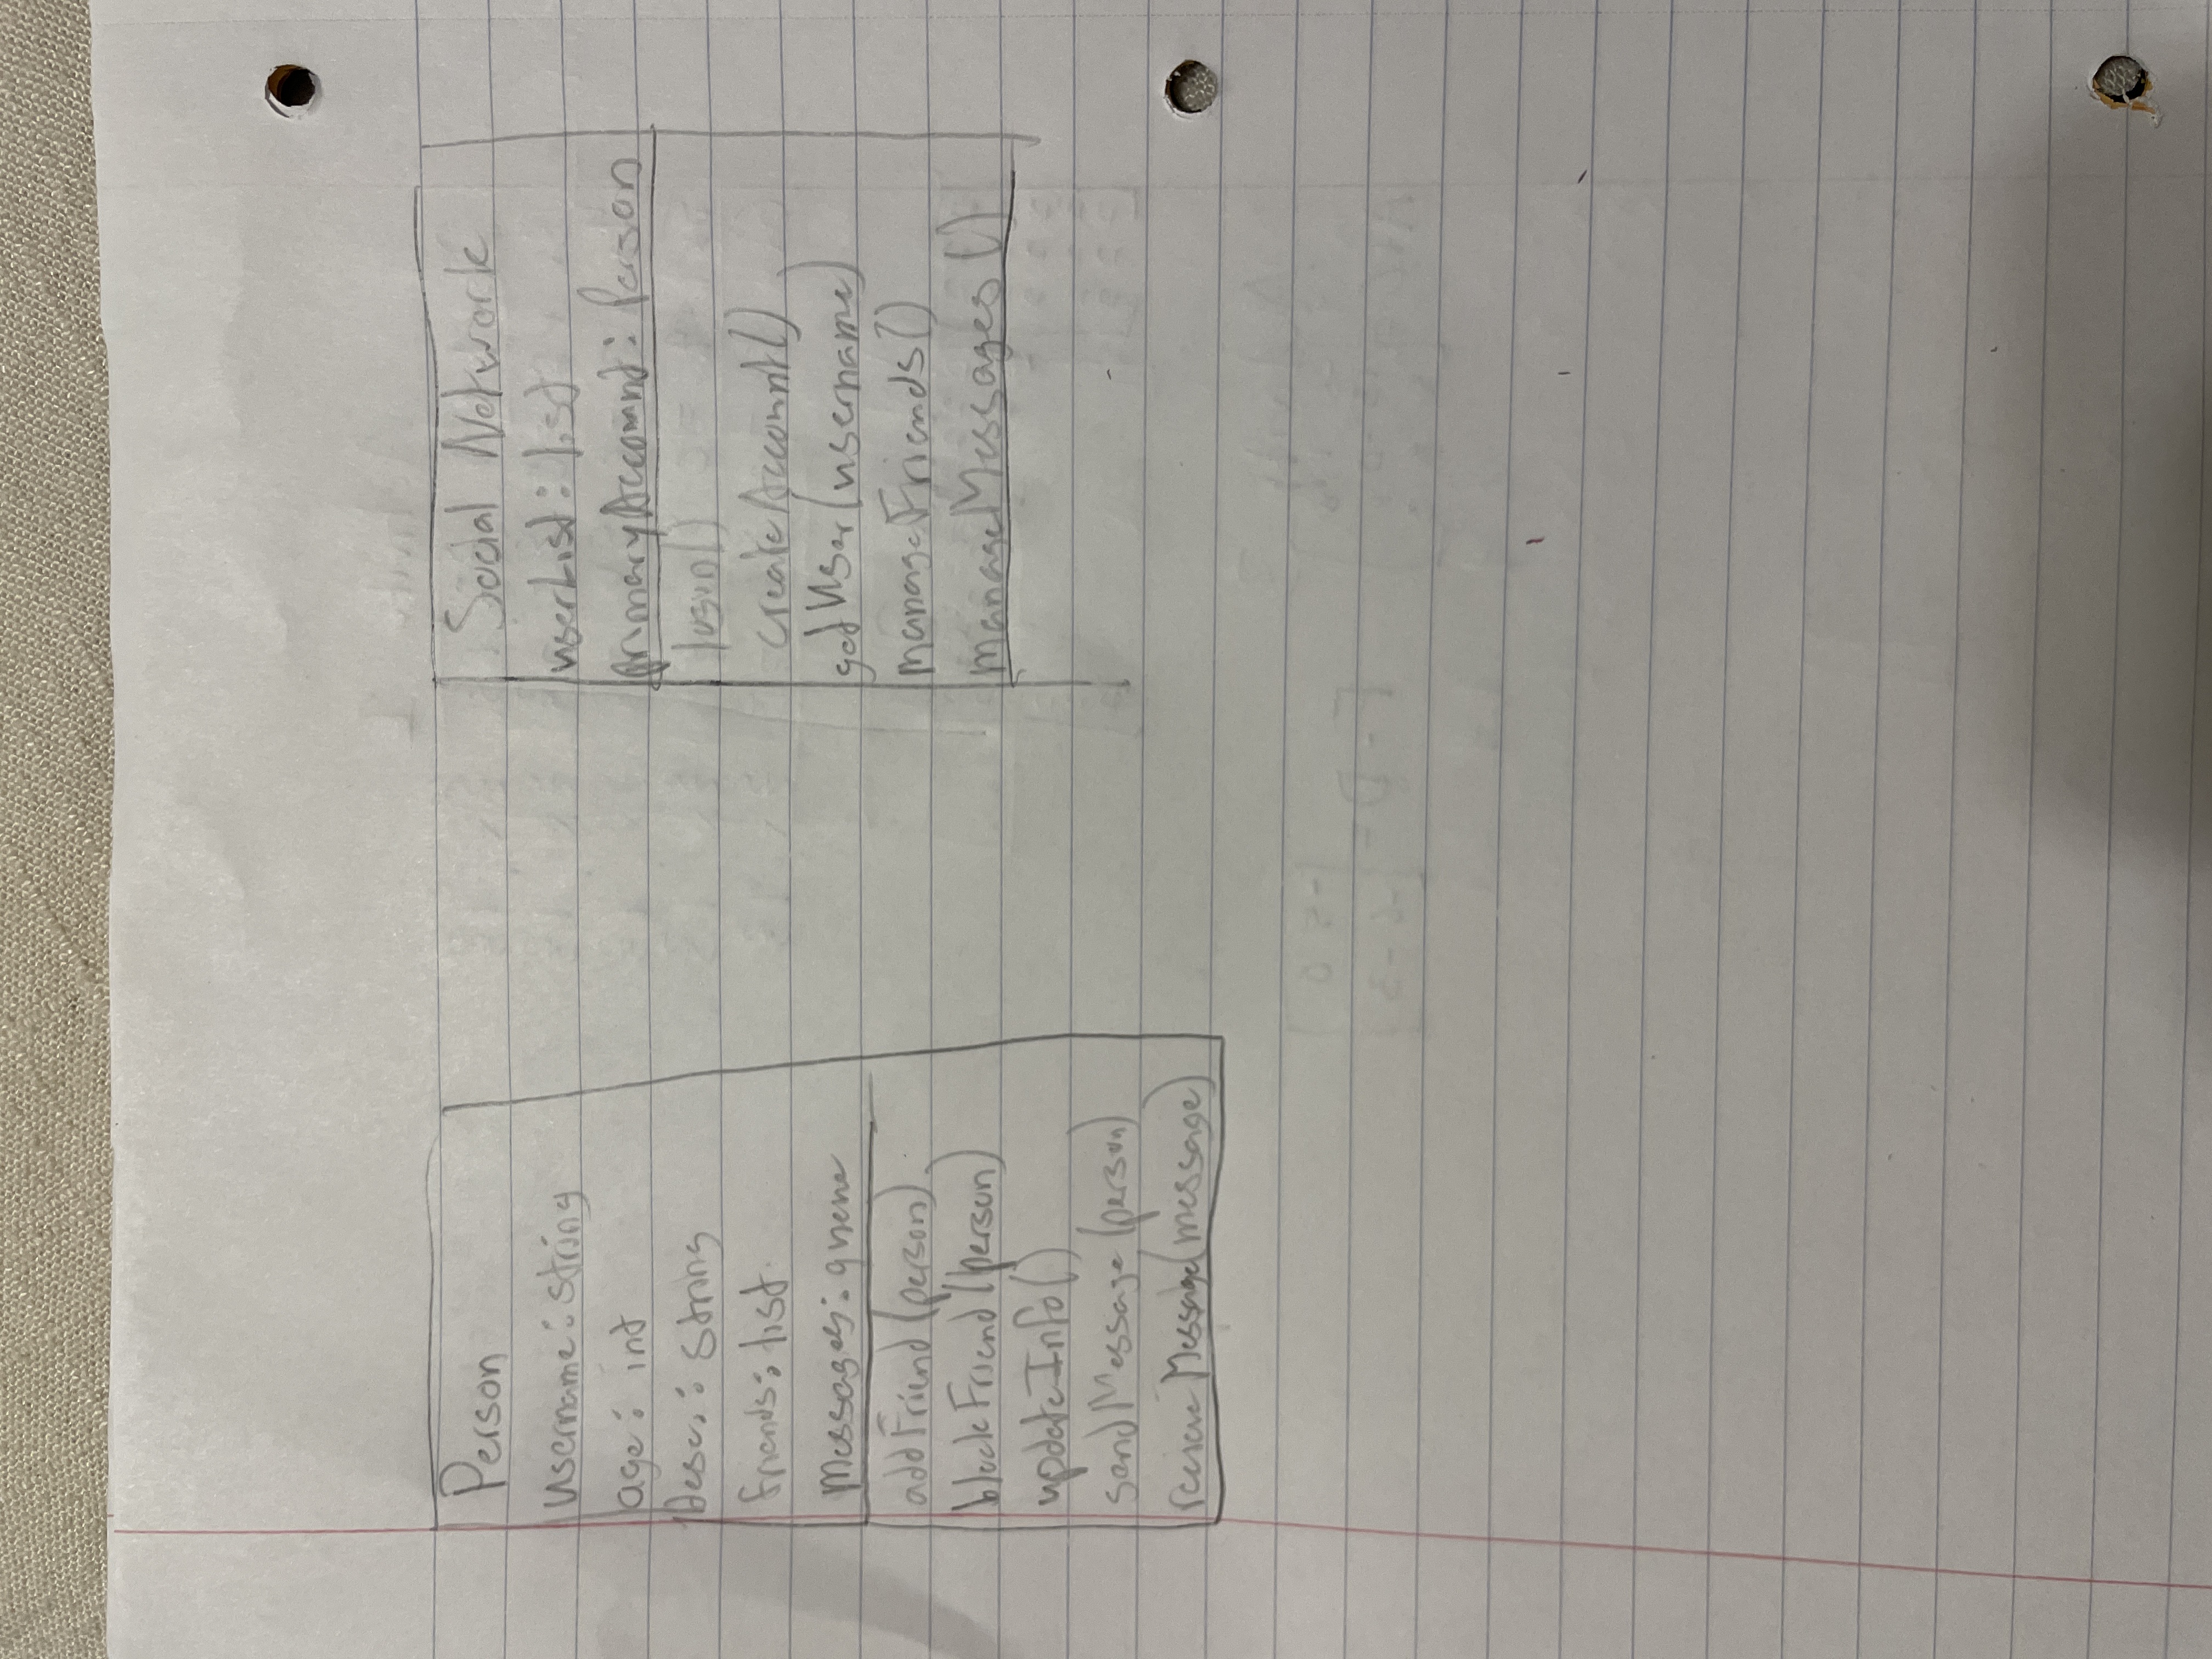 Person
username: string
age: int
Desc.: string
friends: list
Messages: queue
addFriend(person)
blockFriend(person)
updateInfo()
sendMessage(person)
recieveMessage(message)
Social Network
userList: list
primaryAccount: Person
login()
createAccount()
getUser(username)
manageFriends()
manageMessages()
F-D=
-5 0
-6 -3